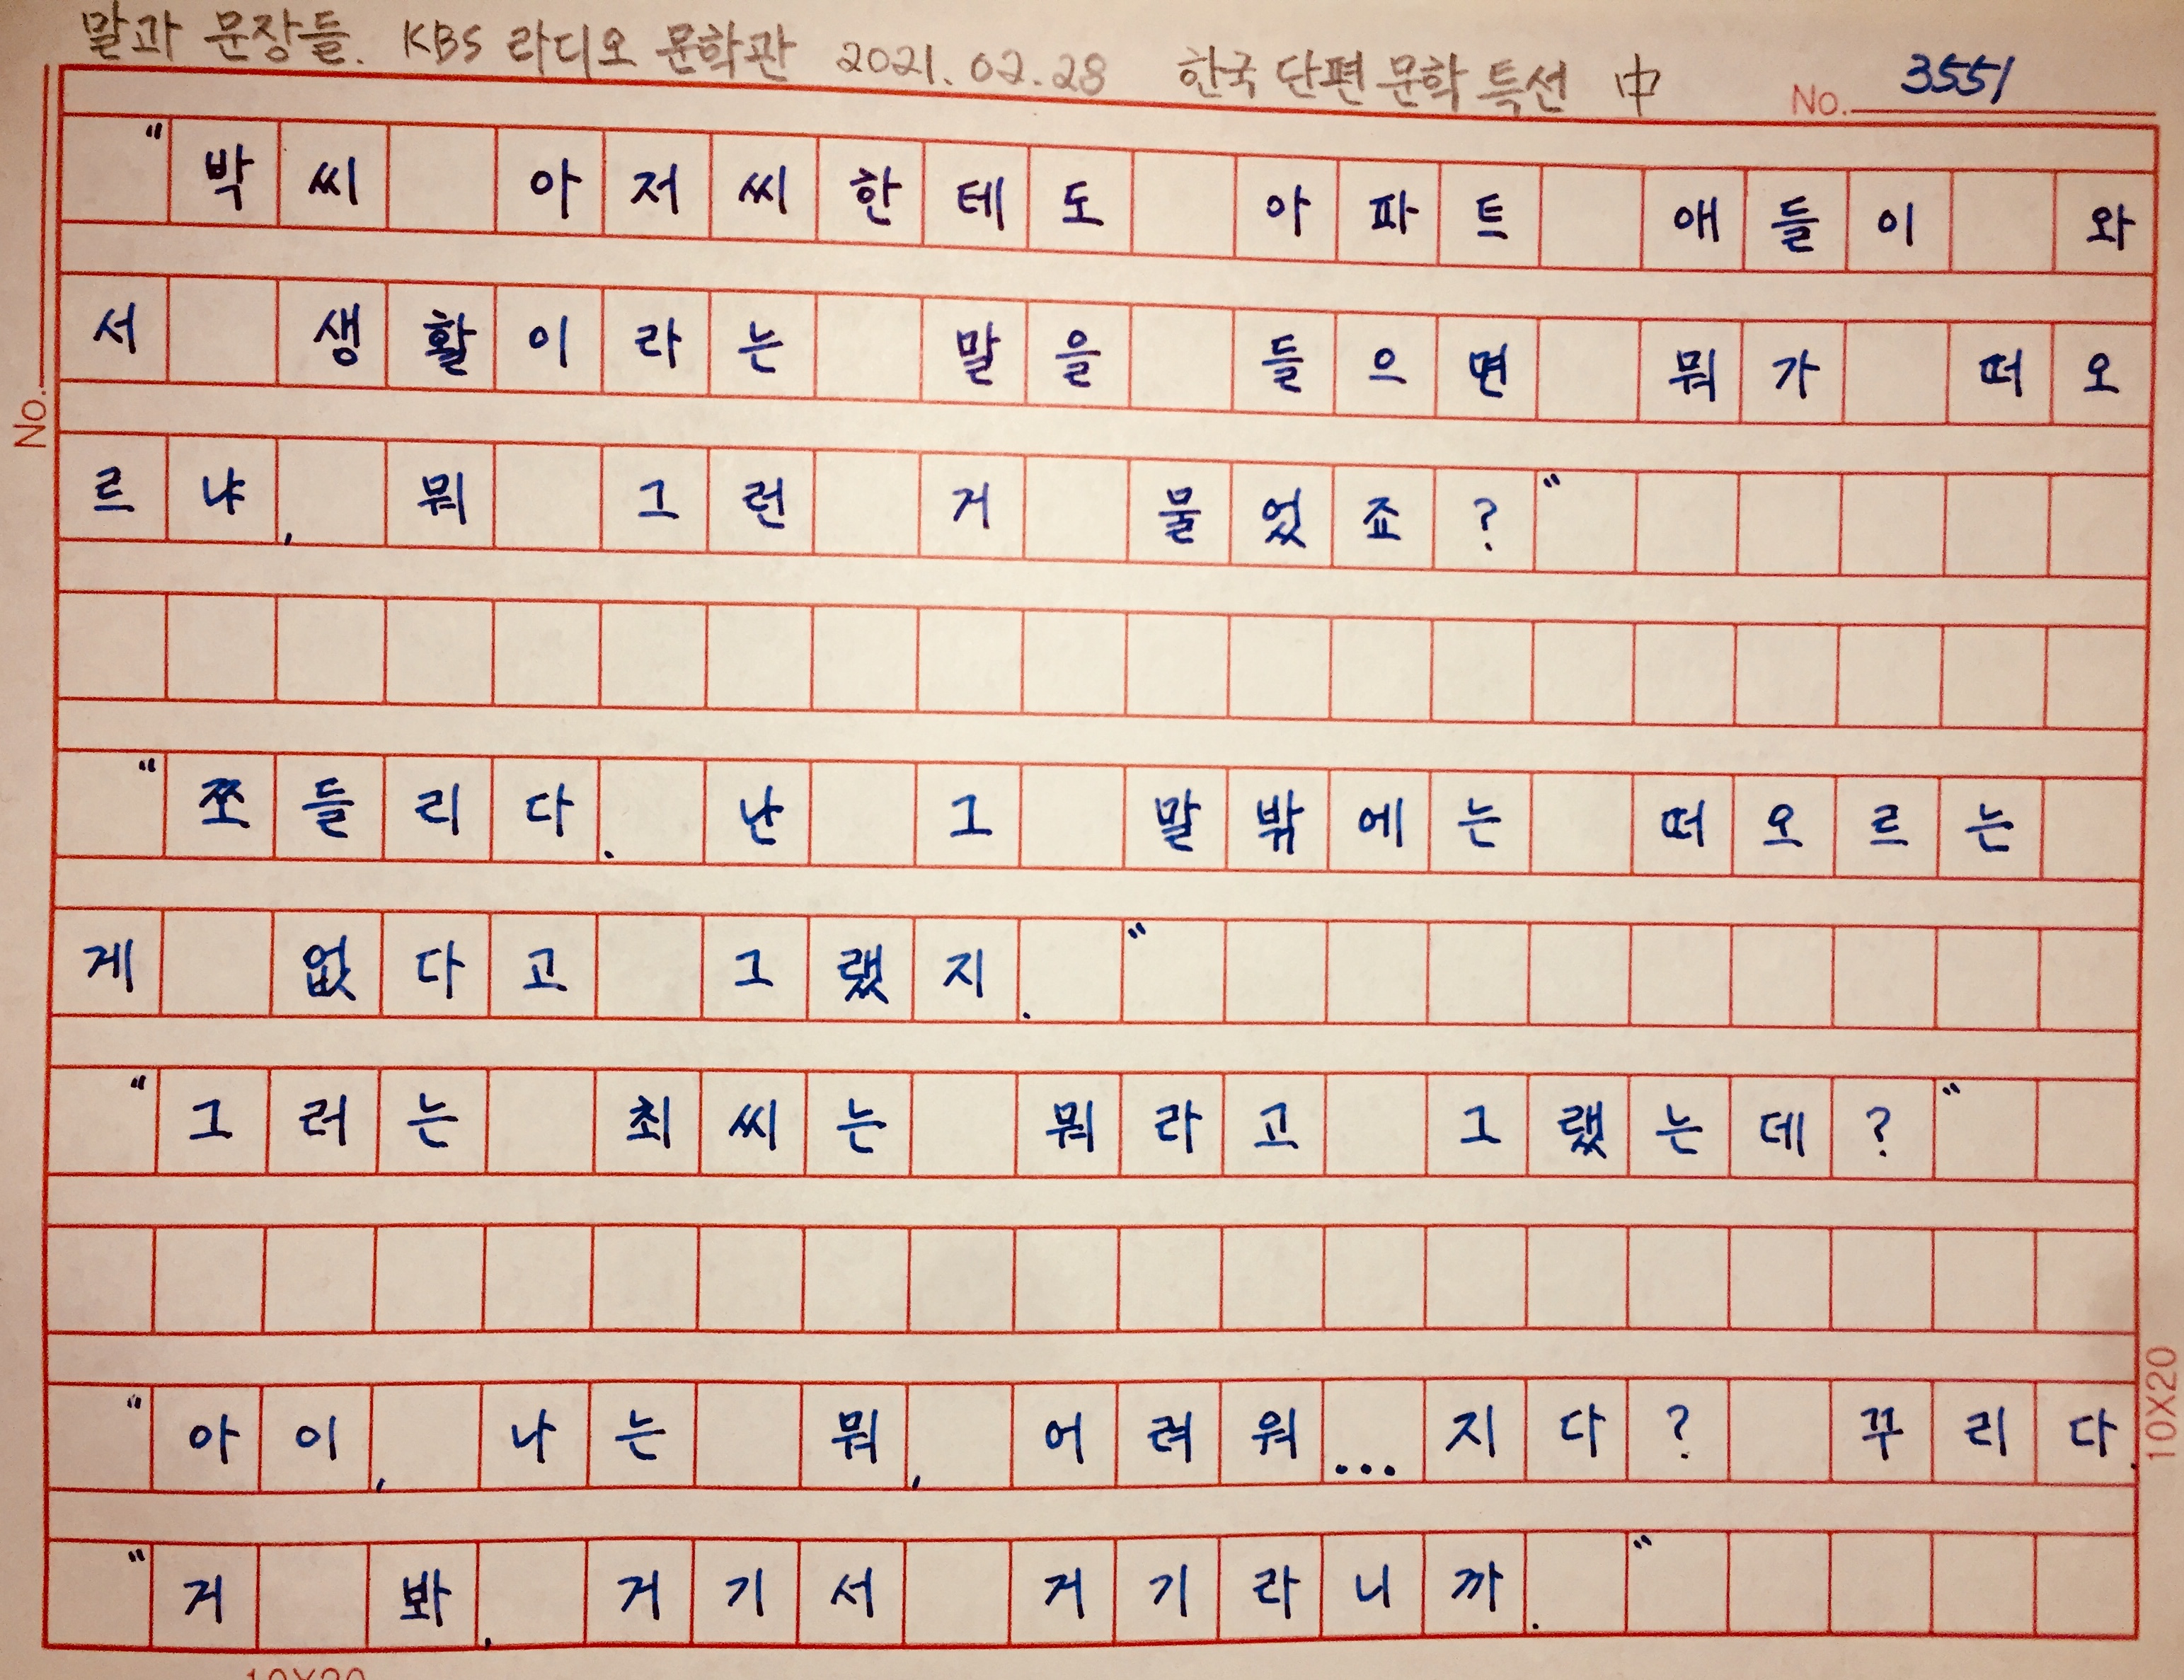 말과 문장들. KBS 라디오 문학관 2021.02.28 한국 단편 문학 특선 中
No. 3551
"박씨 아저씨한테도 아파트 애들이 와
서 생활이라는 말을 들으면 뭐가 떠오
르냐, 뭐 그런 거 물었죠?"
"쪼들리다. 난 그 말밖에는 떠오르는
게 없다고 그랬지."
"그러는 최씨는 뭐라고 그랬는데?"
"아이, 나는 뭐, 어려워...지다? 꾸리다.
"거 봐. 거기서 거기라니까."
No.
10X20
10X20